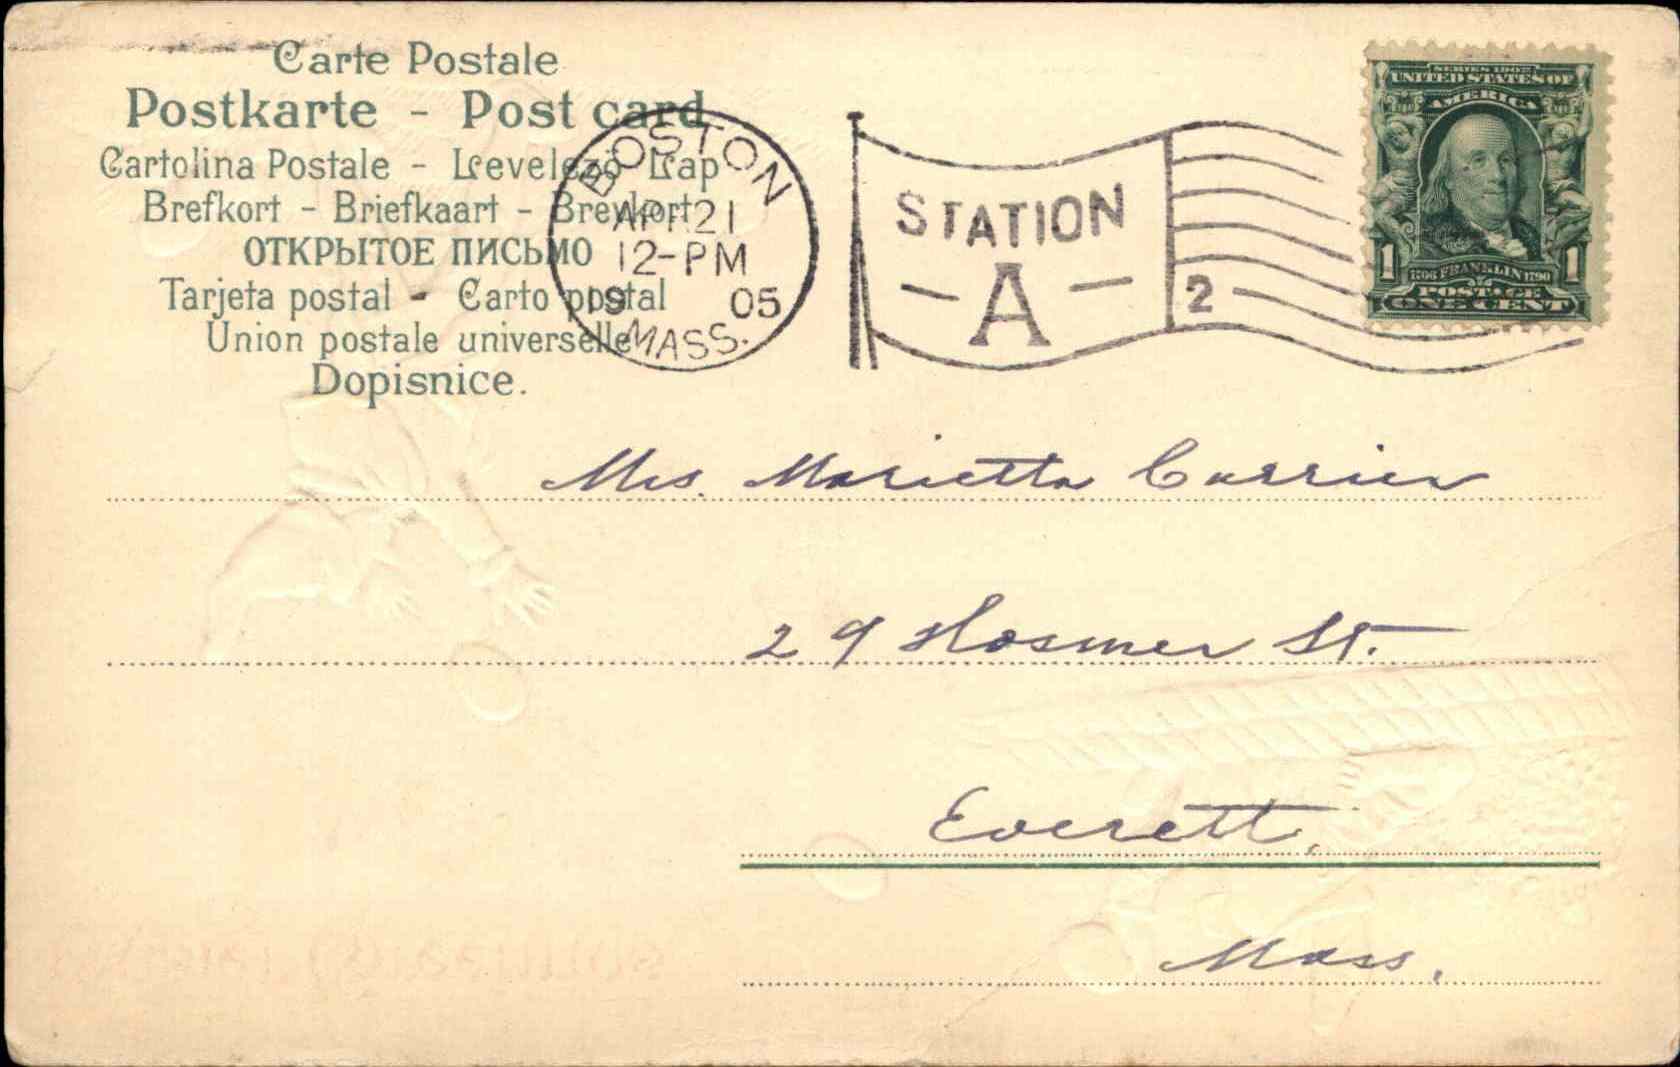 Carte Postale
Postkarte - Post card
Cartolina Postale - Levelező Lap
Brefkort - Briefkaart - Brevkort
ОТКРЫТОЕ ПИСЬМО
Tarjeta postal - Carto postal
Union postale universelle
Dopisnice.
BOSTON
APR 21
12-PM
19 05
MASS.
STATION
- A -
2
SERIES 1902
UNITED STATES OF
AMERICA
1 1706 FRANKLIN 1790 1
POSTAGE
ONE CENT
Mrs. Marietta Currier
29 Hosmer St.
Everett,
Mass.